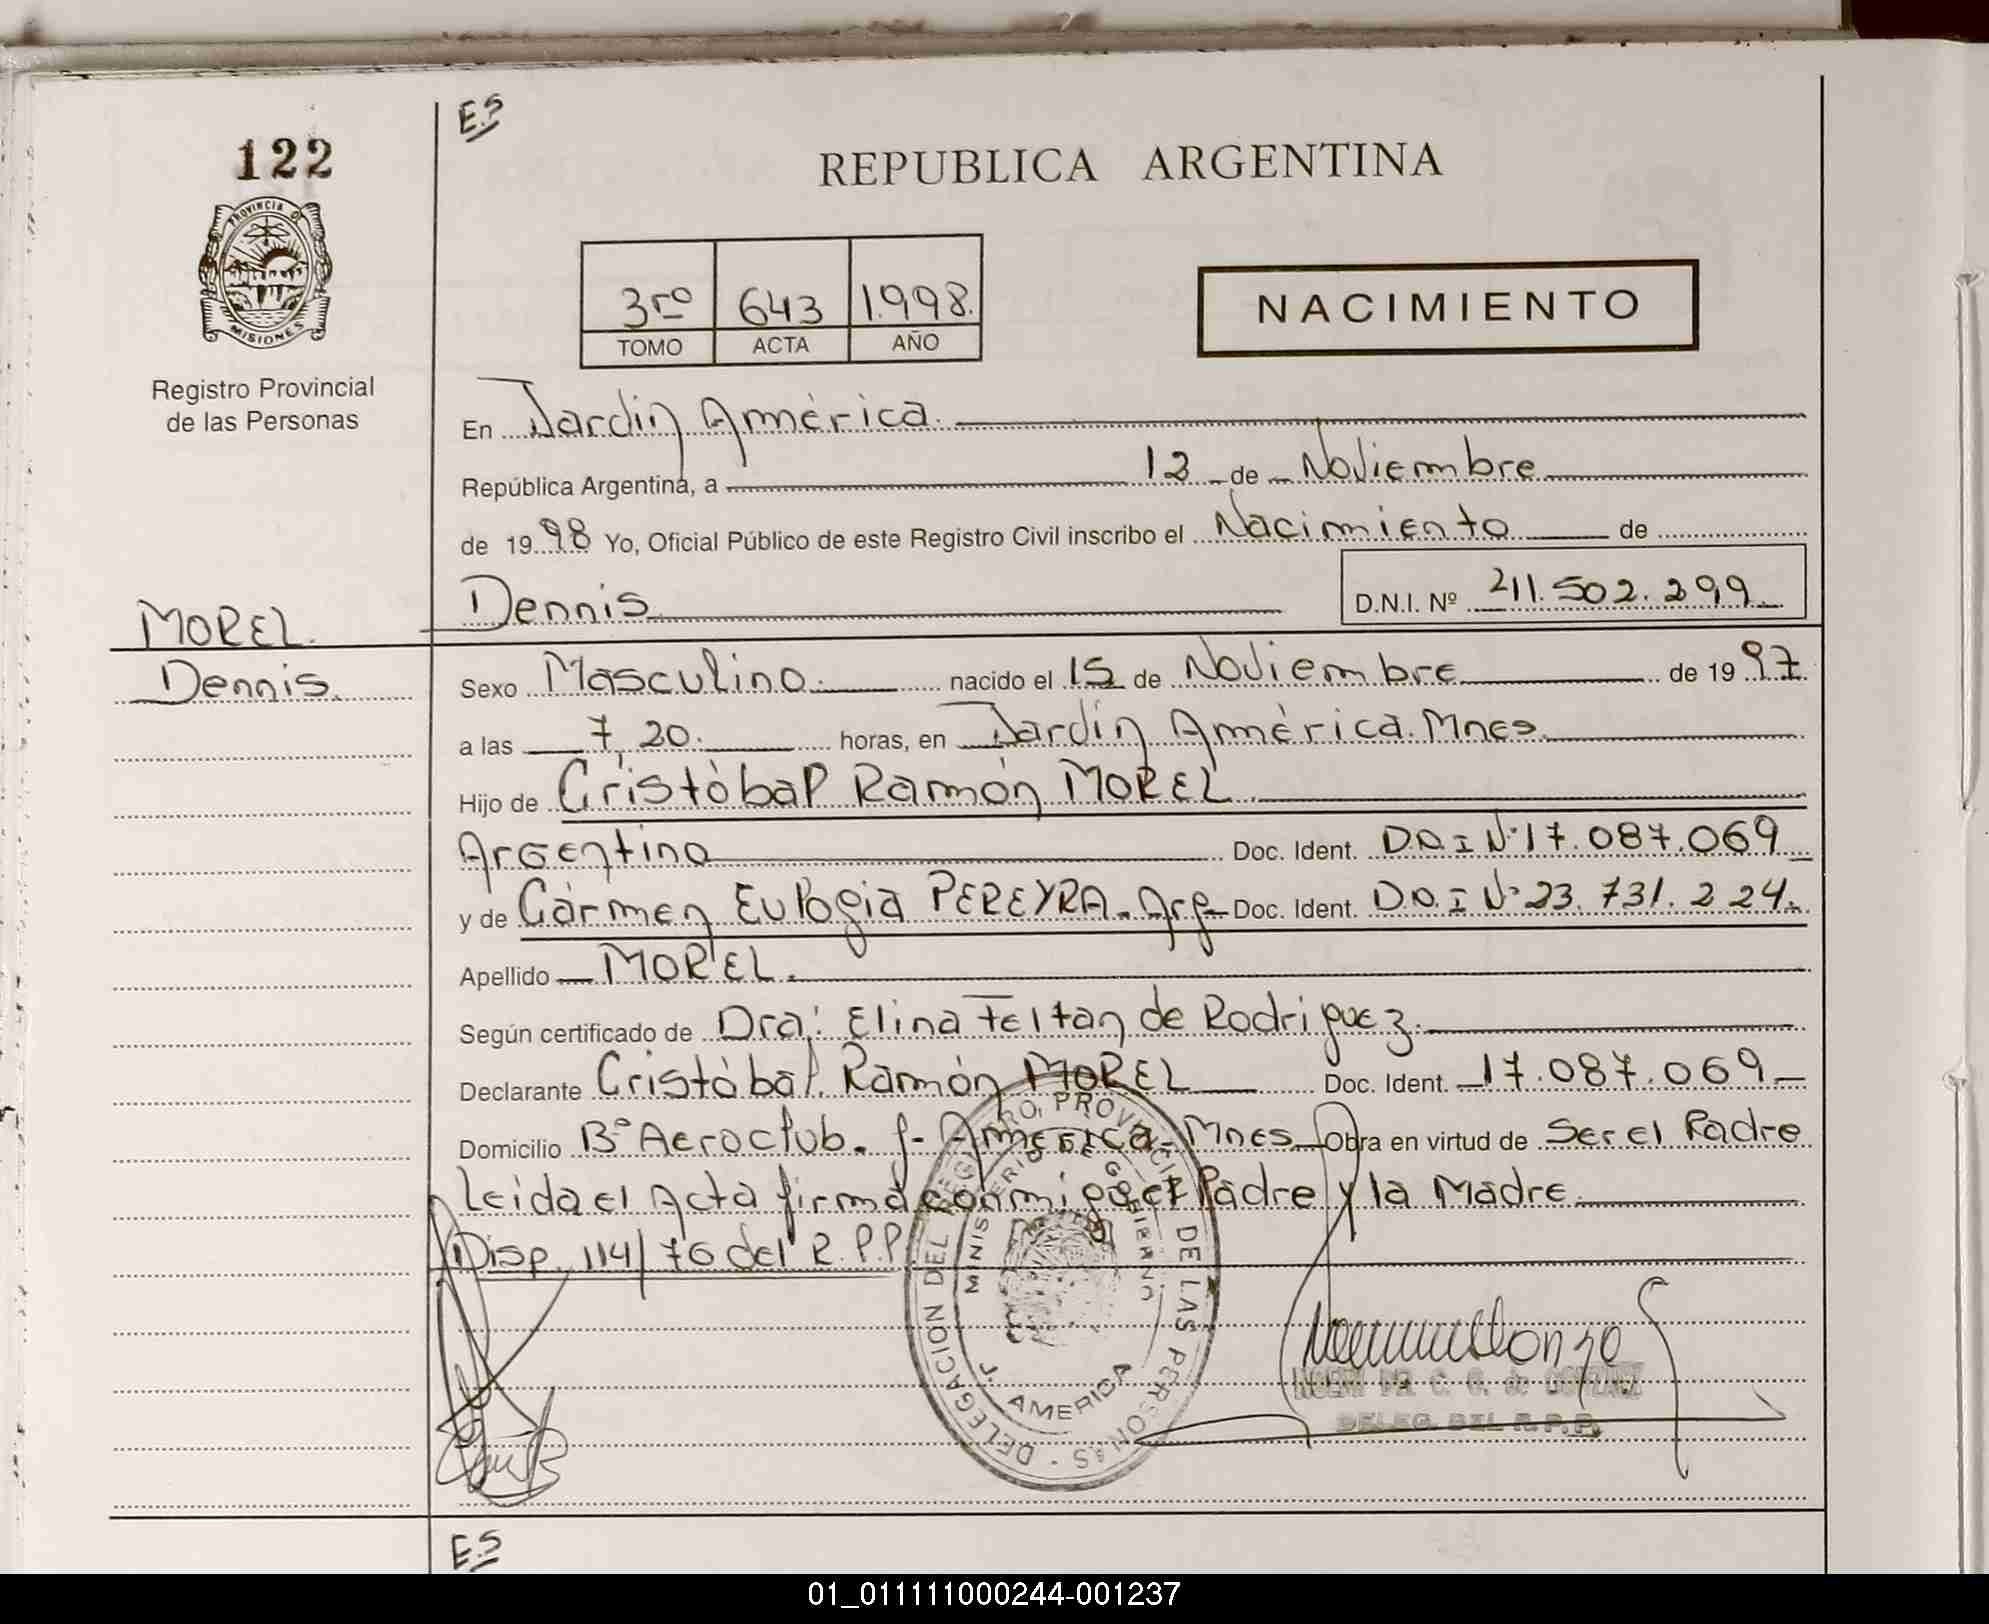 E.S
122
REPUBLICA ARGENTINA
PROVINCIA DE
MISIONES
Registro Provincial
de las Personas
3ro 643 1.998.
TOMO ACTA AÑO
NACIMIENTO
En Jardín América.
República Argentina, a 12 de Noviembre
de 1998 Yo, Oficial Público de este Registro Civil inscribo el Nacimiento de
Dennis D.N.I. Nº 41.502.299.
MOREL.
Dennis.
Sexo Masculino. nacido el 15 de Noviembre de 1997.
a las 7,20. horas, en Jardín América. Mnes.
Hijo de Cristóbal Ramón MOREL.
Argentino Doc. Ident. D.N.I Nº 17.087.069
y de Cármen Eulogia PEREYRA. Arg Doc. Ident. D.N.I Nº 23.731.224.
Apellido MOREL.
Según certificado de Dra: Elina Feltan de Rodriguez.
Declarante Cristóbal Ramón MOREL Doc. Ident. 17.087.069
Domicilio Bº Aeroclub. J. América. Mnes. Obra en virtud de Ser el Padre
Leida el Acta firma conmigo el Padre y la Madre.
Disp. 114/76 del R.P.P
DELEGACION DEL REGISTRO PROVINCIAL DE LAS PERSONAS
MINISTERIO DE GOBIERNO
J. AMERICA
C. G. de GONZALEZ
DELEG. DEL R.P.P.
E.S
01_011111000244-001237